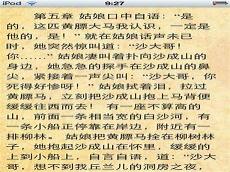 9:27
第五章 姑娘口中自语：“是
的，这匹黄膘大马我认识，一定是
他的，是！”就在姑娘话声未已
时，她突然惊叫道：“沙大哥！
你……”姑娘凄叫着扑向沙成山的
身边，她急急的探手在沙成山的鼻
尖，紧接着一声尖叫：“沙大哥，你
死得好惨呀！”姑娘拭着泪，拉过
黄膘马，立刻把沙成山抱上马背便
缓缓往西而去！有一座不算高的
山，前面一条相当宽的白沙河，有
一条小船正停靠在岸边，附近有一
排柳林。姑娘把黄膘马拴在柳树林
子，她抱起沙成山在怀里，缓缓的
上到小船上，自言自语，道：“沙大
哥，想不到我丘兰儿的洞房之夜，